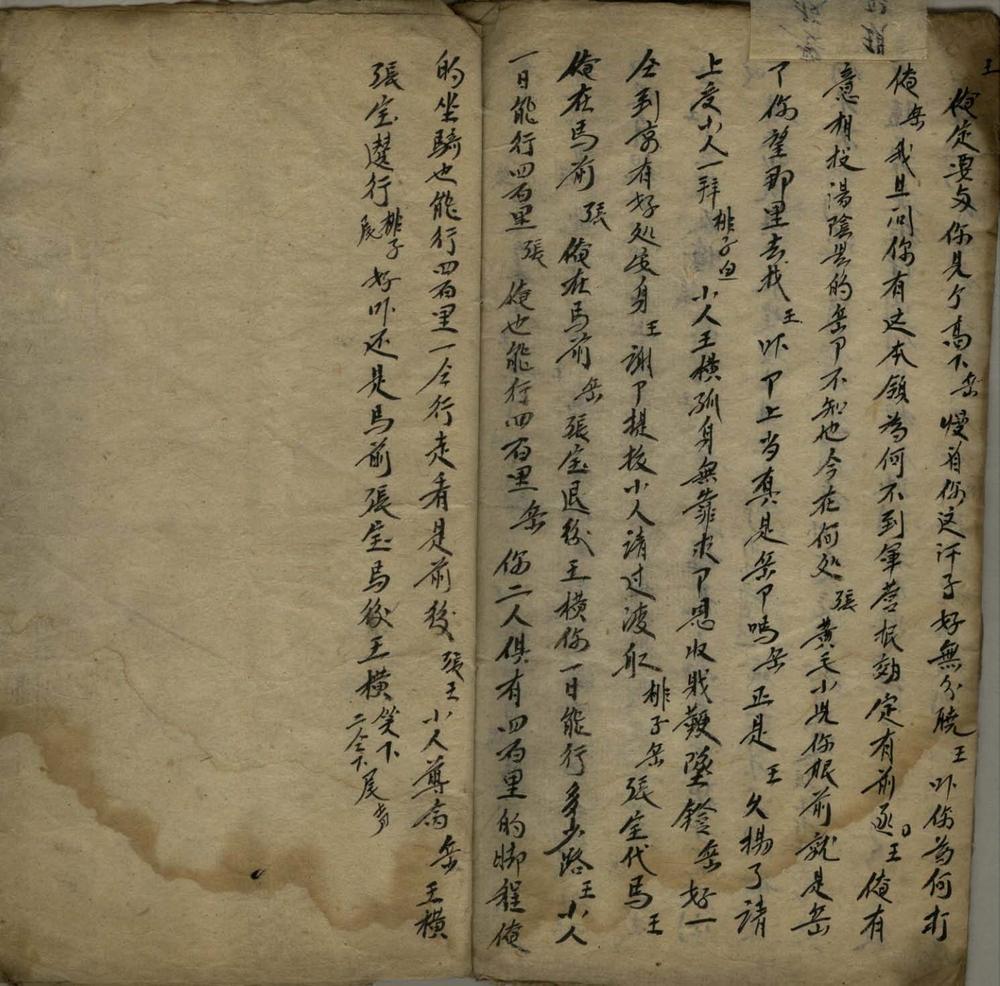 王 俺定要与你見个高下 岳 慢着你这汗子好無分曉 王 吥你為何打
俺 岳 我且问你有这本領為何不到軍营报効定有前丞 王 俺有
意相投湯陰县的岳卩不知他今在何处 張 黄毛小児你眼前就是岳
卩你望那里去找 王 吥卩上当真是岳卩嗎 岳 正是 王 久楊了請
上受小人一拜 排子白 小人王横孤身無靠求卩恩收戝鞭墜鐙 岳 好一
仝到京有好処安身 王 謝卩提拔小人請过渡舡 排子 岳 張宝代馬 王
俺在馬前 張 俺在馬前 岳 張宝退後王横你一日能行多少路 王 小人
一日能行四百里 張 俺也能行四百里 岳 你二人俱有四百里的脚程俺
的坐騎也能行四百里一仝行走看是前後 張王 小人尊命 岳 王横
張宝遷行 排子 尾 好吥还是馬前張宝馬後王横 笑下 二仝下尾声